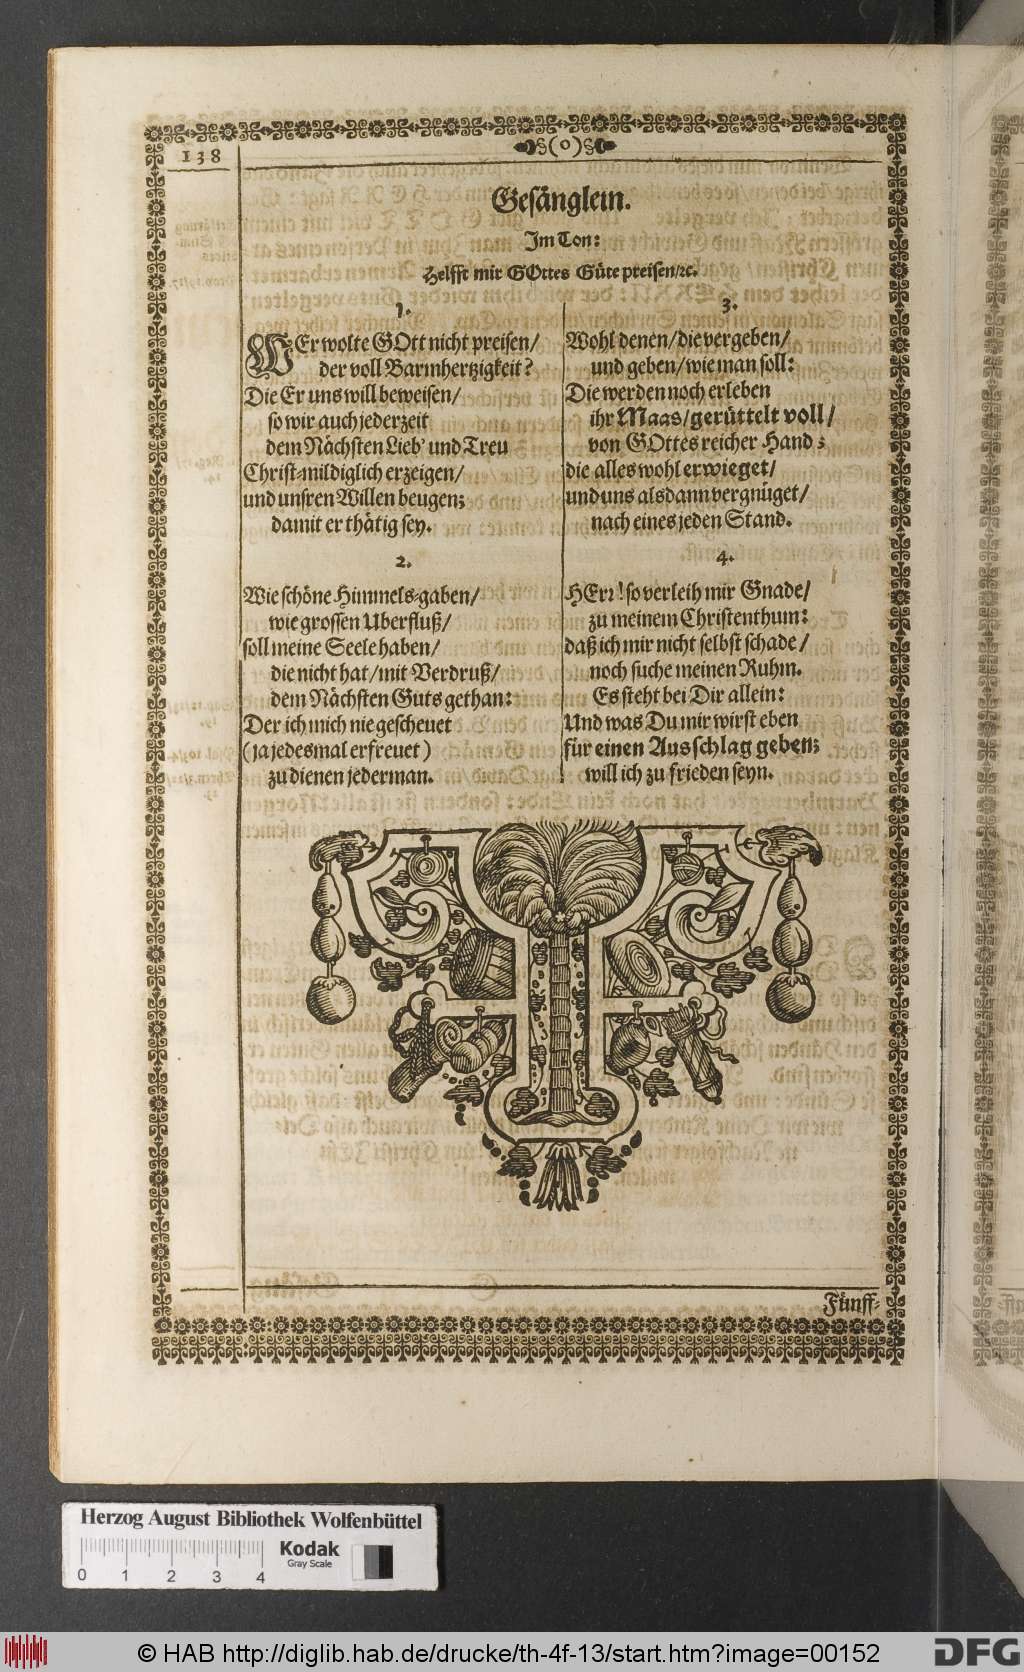 138
§(o)§
Gesänglein.
Im Ton:
Helfft mir GOttes Güte preisen/ꝛc.
1.
WEr wolte GOtt nicht preisen/
der voll Barmhertzigkeit?
Die Er uns will beweisen/
so wir auch jederzeit
dem Nächsten Lieb' und Treu
Christ-mildiglich erzeigen/
und unsren Willen beugen;
damit er thätig sey.
2.
Wie schöne Himmels-gaben/
wie grossen Uberfluß/
soll meine Seele haben/
die nicht hat/mit Verdruß/
dem Nächsten Guts gethan:
Der ich mich nie gescheuet
(ja jedesmal erfreuet)
zu dienen jederman.
3.
Wohl denen/die vergeben/
und geben/wie man soll:
Die werden noch erleben
ihr Maas/gerüttelt voll/
von GOttes reicher Hand;
die alles wohl erwieget/
und uns alsdann vergnüget/
nach eines jeden Stand.
4.
HErr! so verleih mir Gnade/
zu meinem Christenthum:
daß ich mir nicht selbst schade/
noch suche meinen Ruhm.
Es steht bei Dir allein:
Und was Du mir wirst eben
für einen Ausschlag geben;
will ich zu frieden seyn.
Fünff-
Herzog August Bibliothek Wolfenbüttel
Kodak
Gray Scale
0 1 2 3 4
© HAB http://diglib.hab.de/drucke/th-4f-13/start.htm?image=00152
DFG